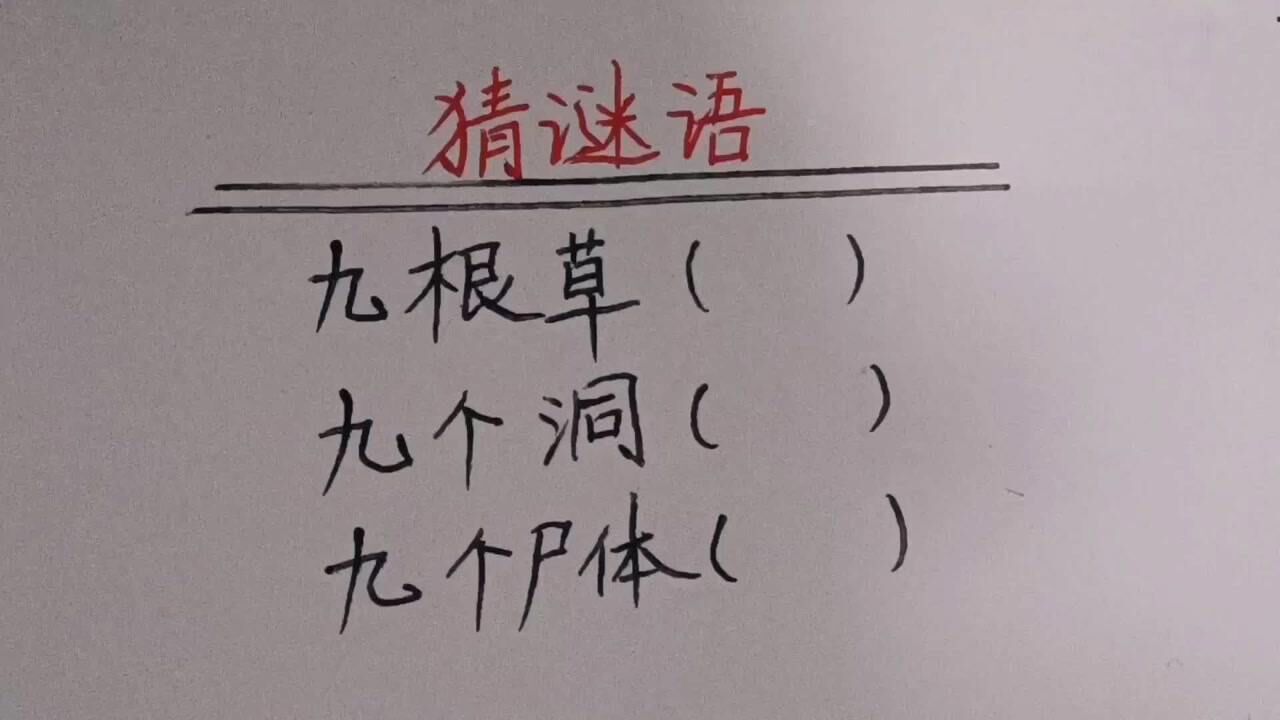 猜谜语
九根草( )
九个洞( )
九个尸体( )